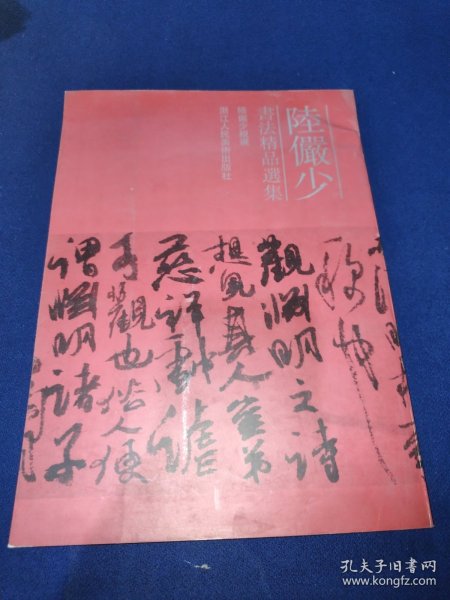 陸儼少
書法精品選集
浙江人民美術出版社
觀淵明之詩
想見其人豈弟
慈祥戲謔
可觀也俗人便
謂淵明諸子
孔夫子旧书网
www.kongfz.com